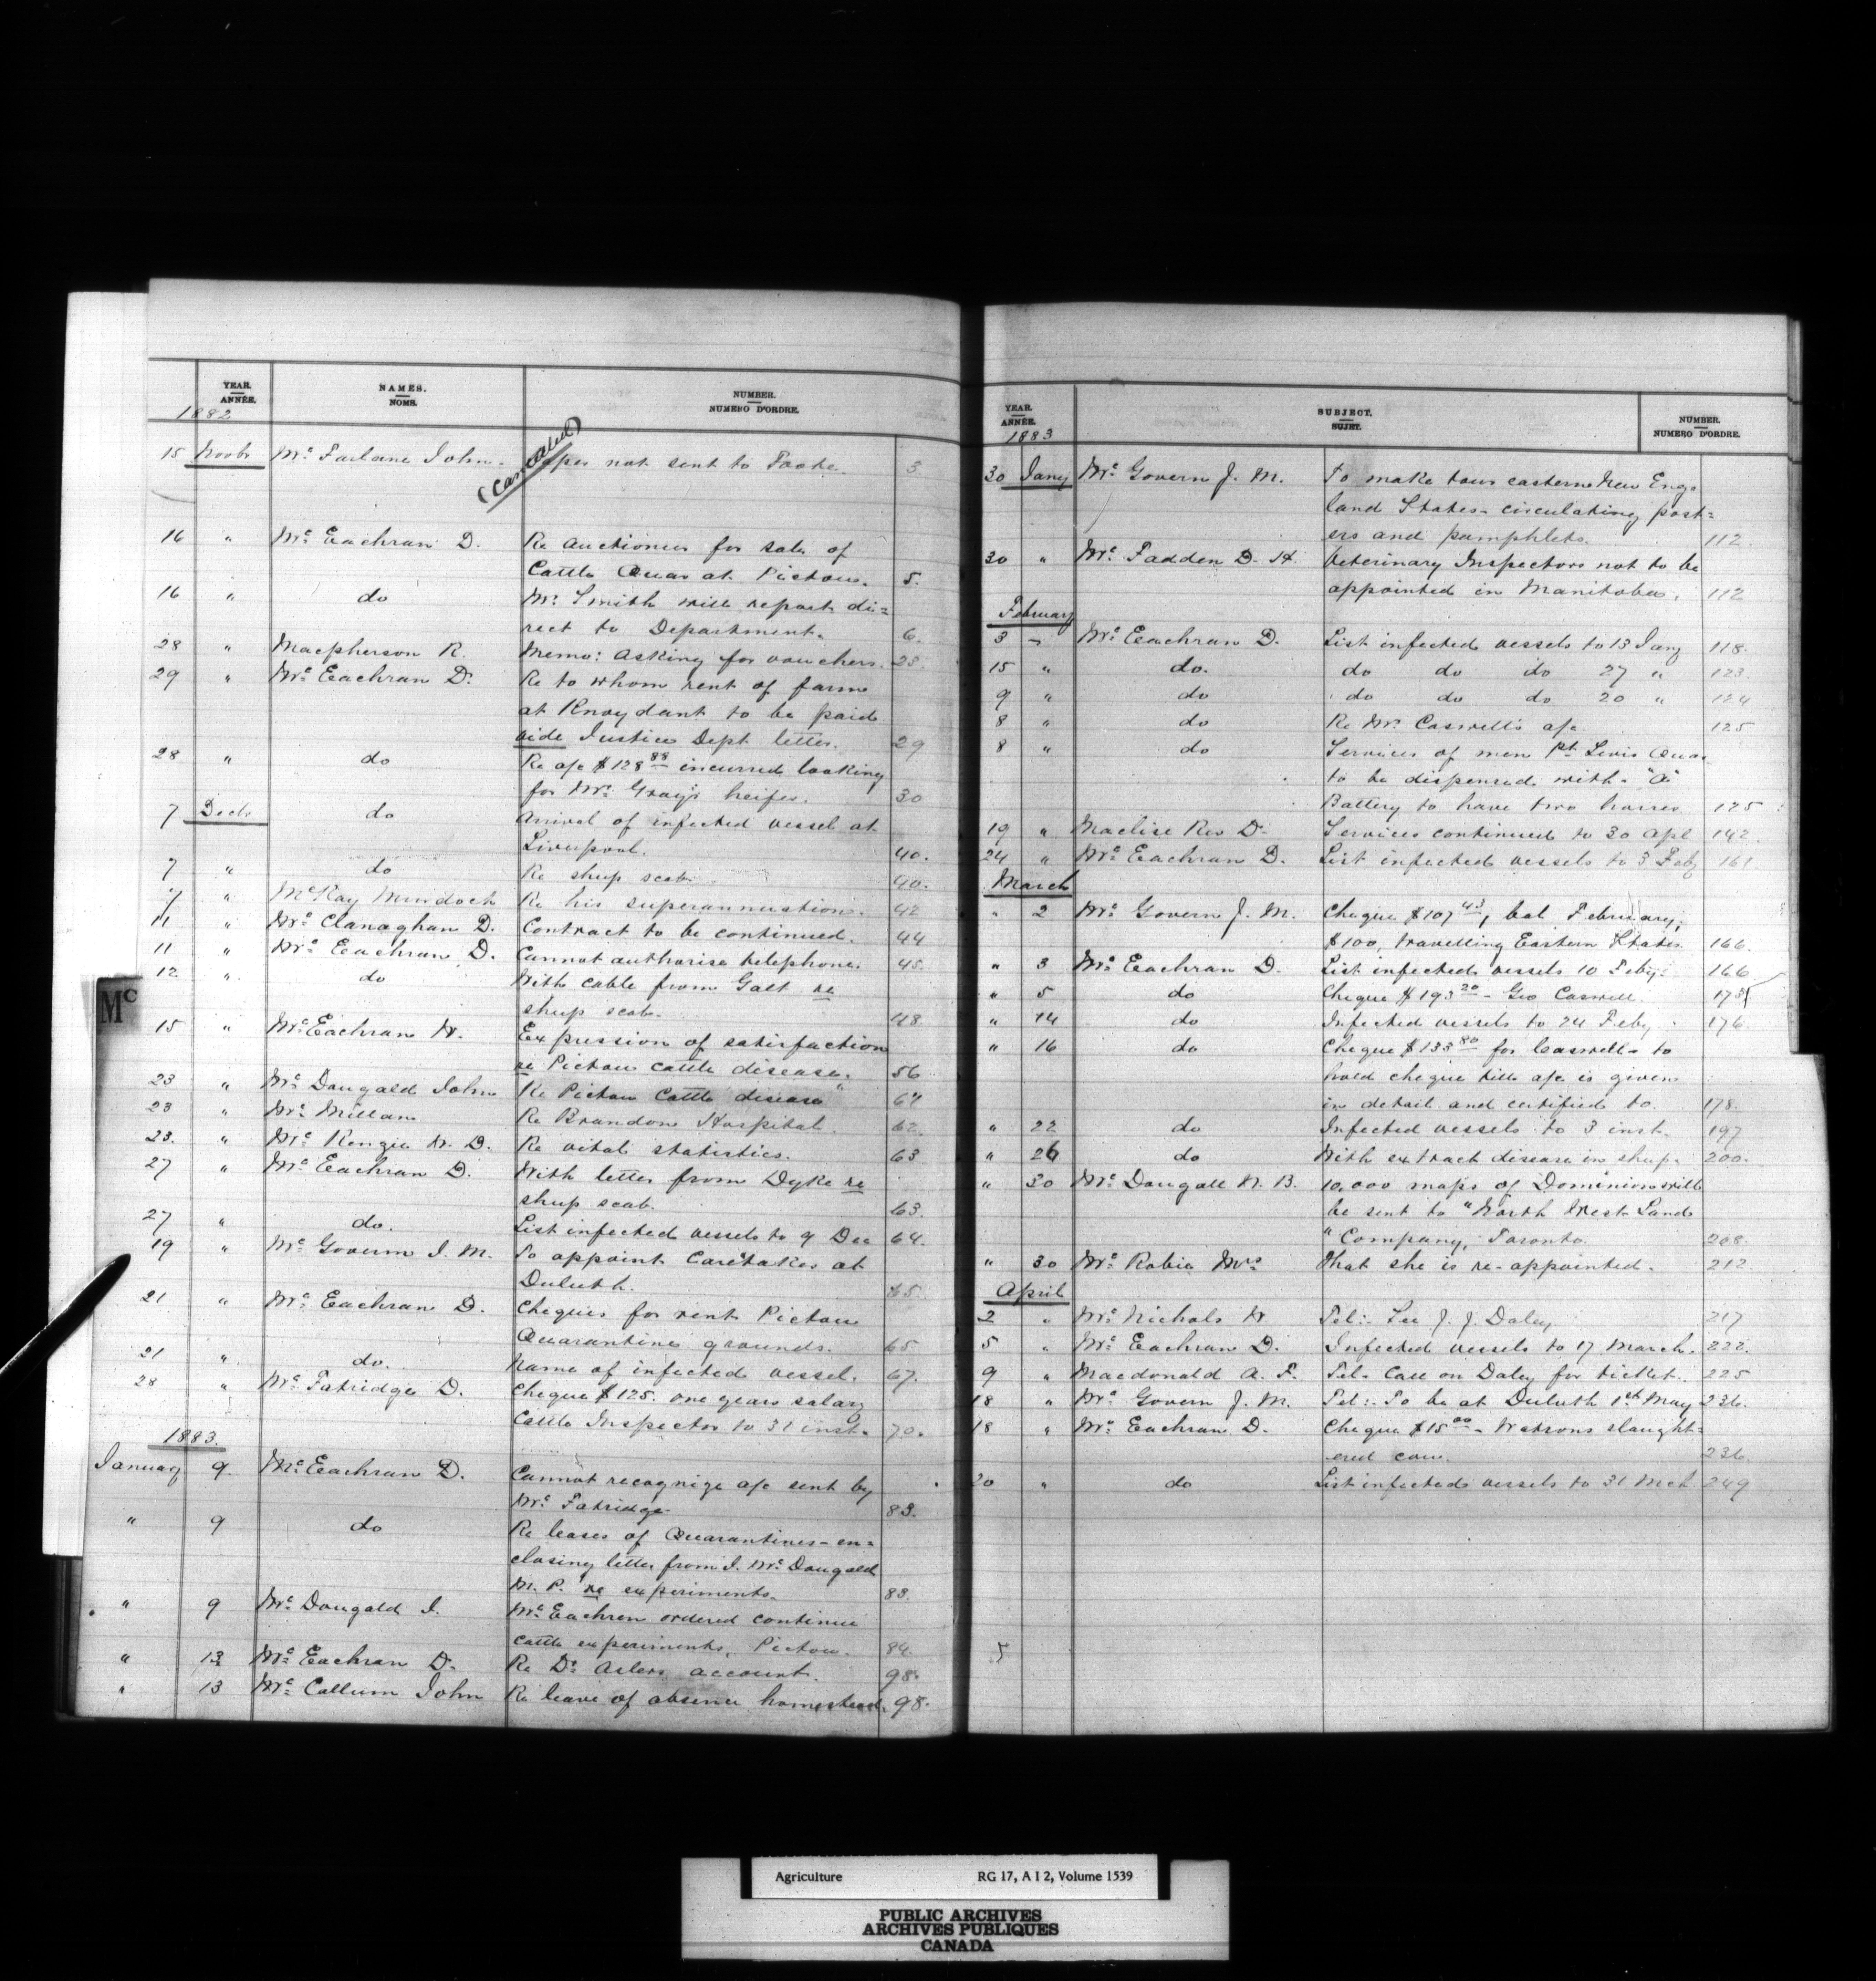 YEAR. ANNÉE. NAMES. NOMS. NUMBER. NUMERO D'ORDRE.
1882
15 Novbr Mc Farlane John. Paper not sent to Toote. 3
(Cancelled)
16 " Mc Eachran D. Re auctioneer for sale of
Cattle Quar at Pictou. 5.
16 " do Mr. Smith will report di=
rect to Department. 6.
28 " Macpherson R. Memo: asking for vouchers. 28.
29 " Mc Eachran D. Re to whom rent of farm
at to be paid
vide Justice Dept letter. 29
28 " do Re a/c $128 88 incurred looking
for Mr. Gray's heifer. 30
7 Decbr do Arrival of infected vessel at
Liverpool. 40.
7 " do Re sheep scab. 40.
7 " McKay Murdoch Re his superannuation. 42
11 " Mc Clanaghan D. Contract to be continued. 44
11 " Mc Eachran D. Cannot authorise telephone. 45.
12 " do With cable from Galt re
sheep scab. 48
Mc
15 " Mc Eachran W. Expression of satisfaction
re Pictou cattle disease. 56
23 " Mc Dougald John Re Pictou Cattle disease" 61
23 " Mc Millan Re Brandon Hospital. 62.
23. " Mc Kenzie W. D. Re vital statistics. 63
27 " Mc Eachran D. With letter from Dyke re
sheep scab. 63.
27 " do. List infected vessels to 9 Dec 64.
19 " Mc Govern J. M. To appoint Caretaker at
Duluth. 65.
21 " Mc Eachran D. Cheques for rent Pictou
Quarantine grounds. 65
21 " do. Name of infected vessel. 67.
28 " Mc Fatridge D. Cheque $125. one years salary
Cattle Inspector to 31 inst. 70.
1883.
January 9. Mc Eachran D. Cannot recognize a/c sent by
Mc Fatridge. 83.
" 9 do Re leases of Quarantines - en=
closing letter from J. Mc Dougald
M. P. re experiments. 83.
" 9 Mc Dougald J. Mc Eachren ordered continue
cattle experiments, Pictou. 84.
" 13 Mc Eachran D. Re Dr account. 98.
" 13 Mc Callum John Re leave of absence homestead. 98.
YEAR. ANNÉE. SUBJECT. SUJET. NUMBER. NUMERO D'ORDRE.
1883
30 Jany Mc Govern J. M. To make tour eastern New Eng=
land States - circulating post=
ers and pamphlets. 112.
30 " Mc Fadden D. H. Veterinary Inspectors not to be
appointed in Manitoba. 112
February
3 " Mc Eachran D. List infected vessels to 13 Jany 118.
15 " do. do do do 27 " 123.
9 " do do do do 20 " 124
8 " do Re Mr. Caswell's a/c 125
8 " do Services of men Pt. Levis Quar
to be dispensed with - "A"
Battery to have two horses 125
19 " Maclise Rev D. Services continued to 30 Apl 142.
24 " Mc Eachran D. List infected vessels to 3 Feby 161.
March
" 2 Mc Govern J. M. Cheque $107 43, bal February;
$100, travelling Eastern States. 166.
" 3 Mc Eachran D. List infected vessels 10 Feby. 166
" 5 do Cheque $193 20 - Geo Caswell. 173
" 14 do Infected vessels to 24 Feby. 176.
" 16 do Cheque $133 80 for Caswell - to
hold cheque till a/c is given
in detail and certified to. 178.
" 22 do Infected vessels to 3 inst. 197
" 26 do With extract disease in sheep. 200.
" 30 Mc Dougall W. B. 10,000 maps of Dominion will
be sent to "North West Land
" Company, Toronto. 208.
" 30 Mc Robie Mrs That she is re-appointed. 212
April
2 " Mc Nichols W Tel:- See J. J. Daley. 217
5 " Mc Eachran D. Infected vessels to 17 March. 222.
9 " Macdonald A. F. Tel- Call on Daley for ticket. 225
18 " Mc Govern J. M. Tel:- To be at Duluth 1st May 236.
18 " Mc Eachran D. Cheque $15 00 - Watsons slaught=
ered cow. 236.
20 " do List infected vessels to 31 Mch. 249
5
Agriculture RG 17, A I 2, Volume 1539
PUBLIC ARCHIVES
ARCHIVES PUBLIQUES
CANADA